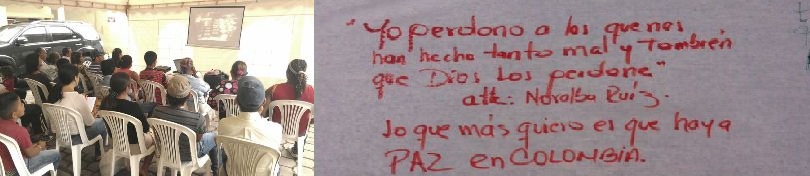 "Yo perdono a los que nos
han hecho tanto mal y También
que Dios Los perdone"
att: Noralba Ruíz.
lo que más quiero es que haya
PAZ en COLOMBIA.